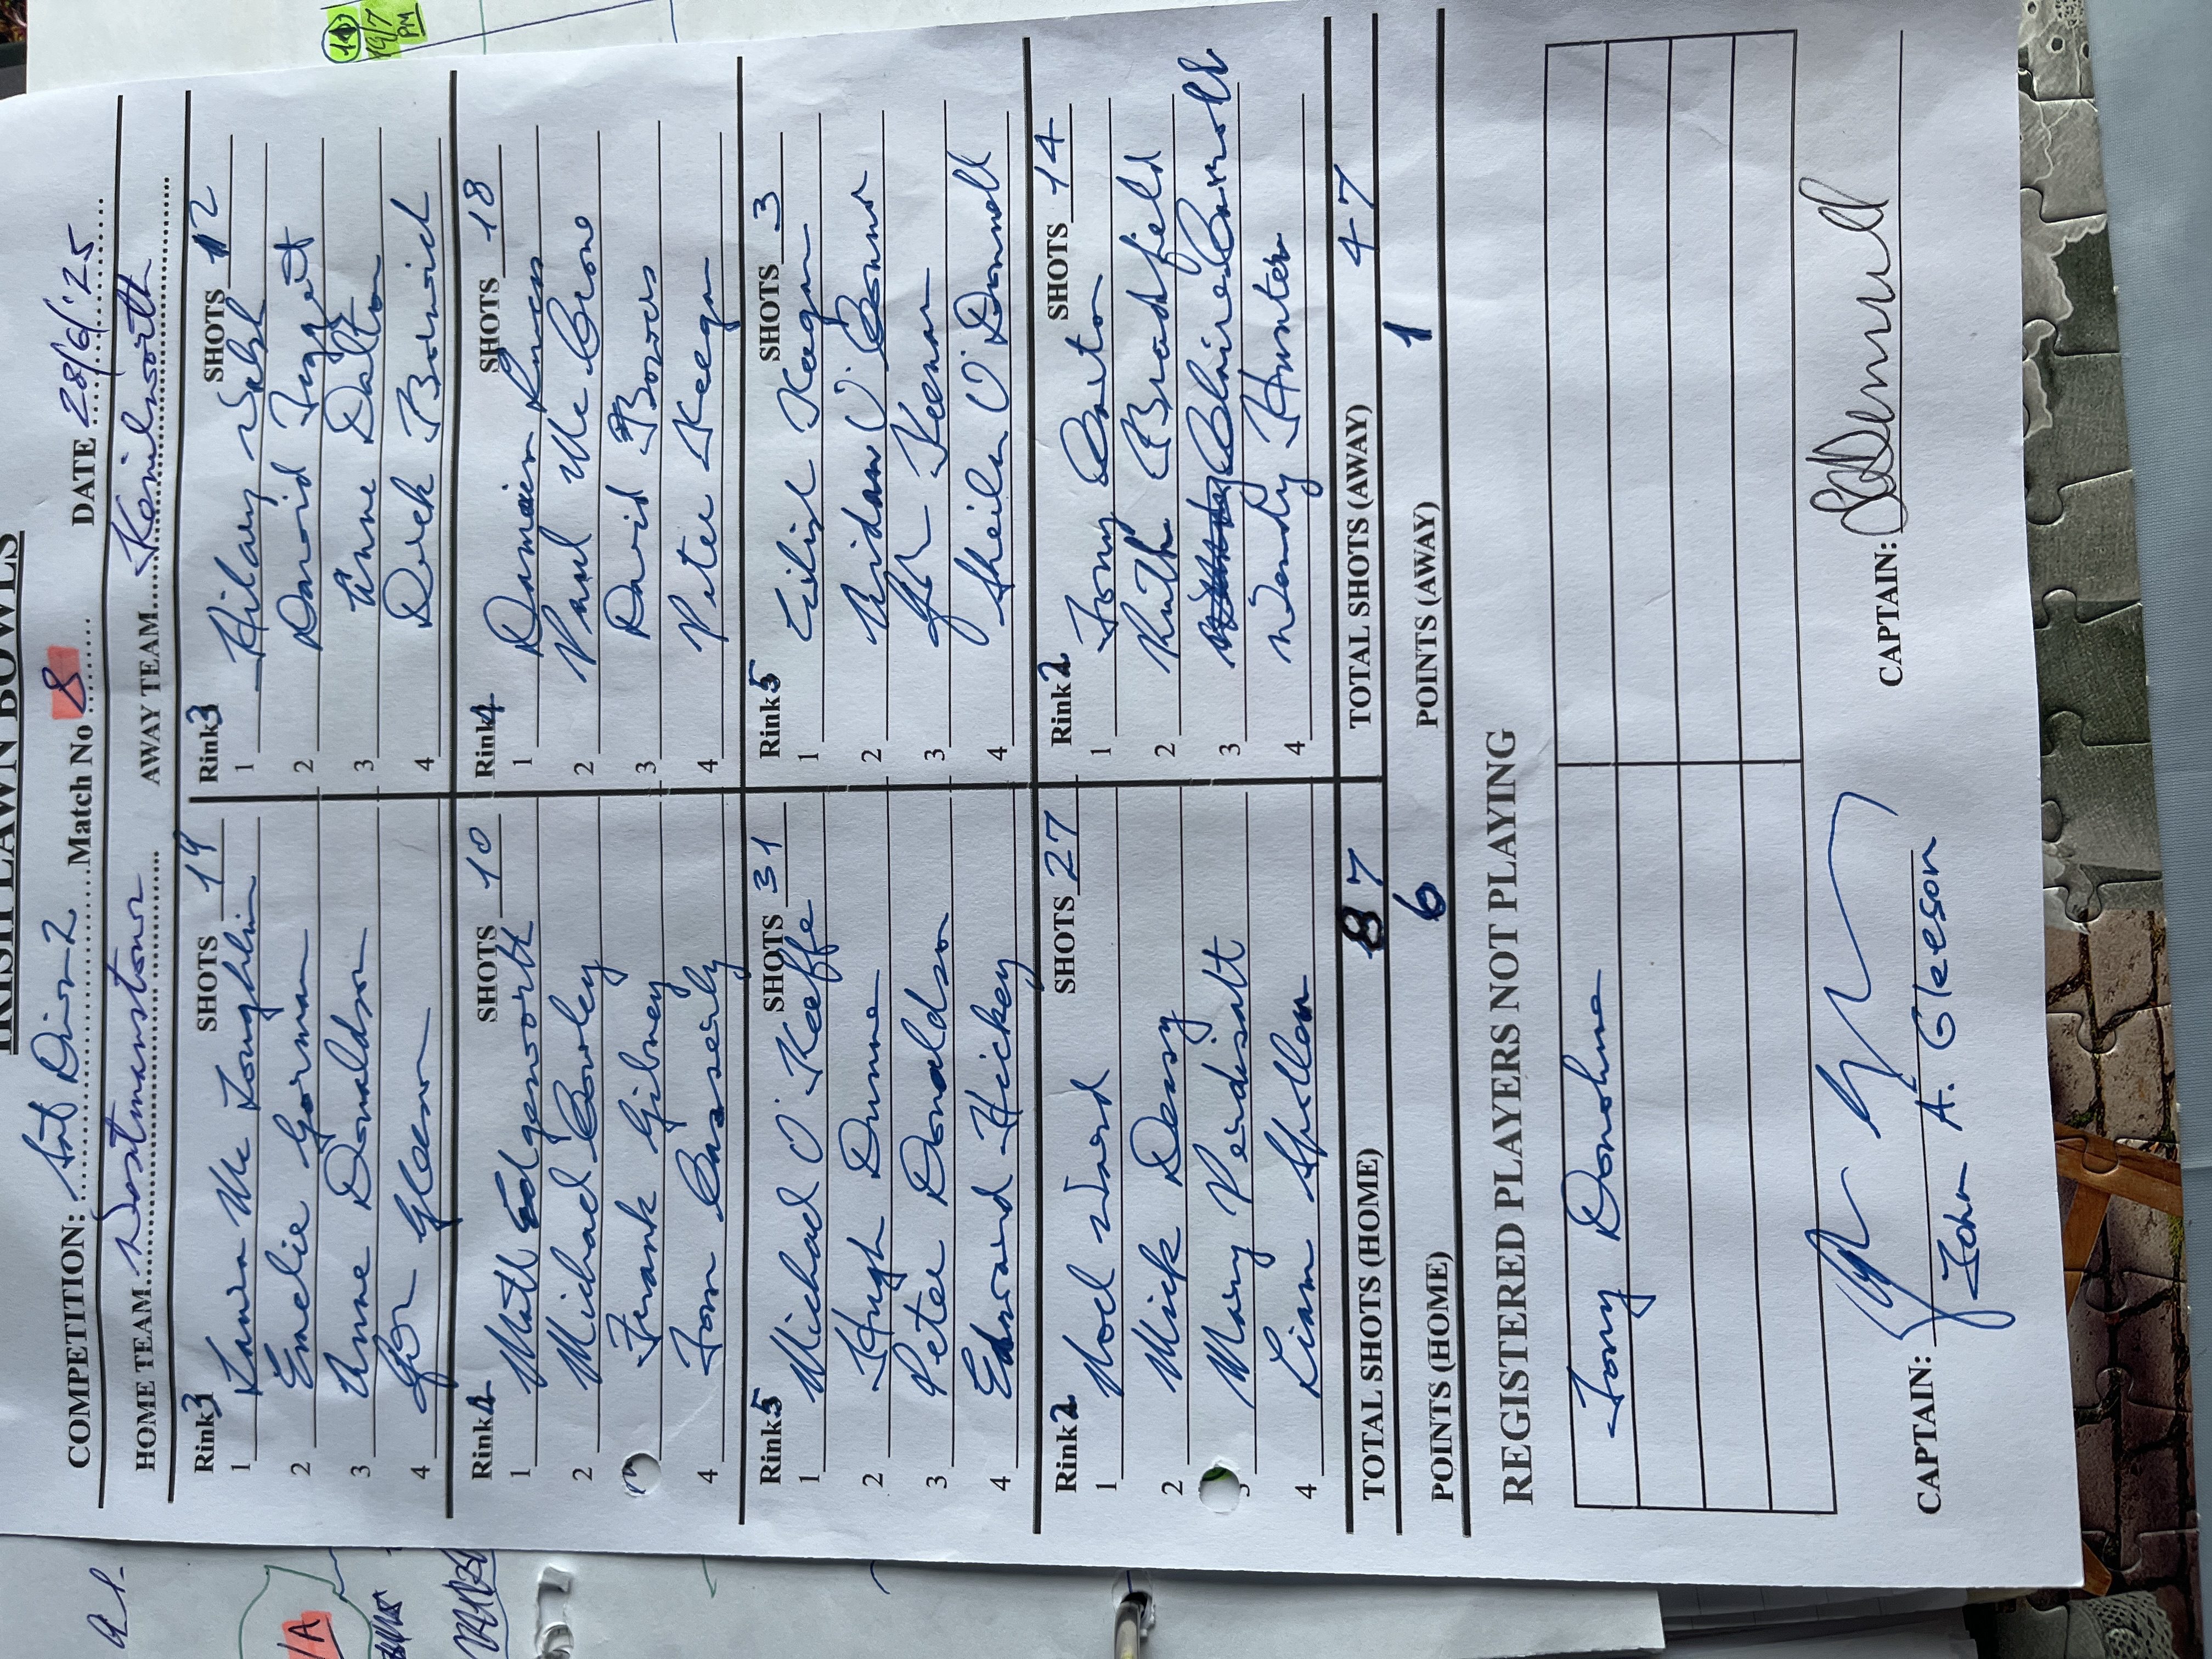 IRISH LAWN BOWLS
COMPETITION: Sat Div 2 Match No 8 DATE 28/6/'25
HOME TEAM Westmanstown AWAY TEAM Kenilworth
Rink 3 SHOTS 19 Rink 3 SHOTS 12
1 Mc Loughlin 1 Hilary
2 Emelie Gorman 2 David
3 Anne Donaldson 3 Anne Dalton
4 Gleeson 4 Derek
Rink 4 SHOTS 10 Rink 4 SHOTS 18
1 Matt Edgeworth 1 Damien
2 Michael 2 Paul
Frank Gibney 3 David Bowers
4 Tom Casserly 4 Pete Keegan
Rink 5 SHOTS 31 Rink 5 SHOTS 3
1 Michael O'Keeffe 1 Eilish
2 Hugh Dunne 2 O'Connor
3 Pete Donaldson 3 Keenan
4 Edward Hickey 4 Sheila O'Donnell
Rink 2 SHOTS 27 Rink 2 SHOTS 14
1 Noel Ward 1 Tony
2 Mick Dessy 2 Ruth Bradfield
3 Mary 3 Claire Carroll
4 Liam Spollen 4 Wendy Hunter
TOTAL SHOTS (HOME) 87 TOTAL SHOTS (AWAY) 47
POINTS (HOME) 6 POINTS (AWAY) 1
REGISTERED PLAYERS NOT PLAYING
Tony Donohue
CAPTAIN: John A. Gleeson CAPTAIN:
14
19/7
PM
/A